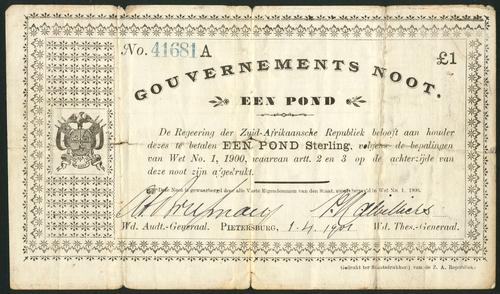 No. 41681 A
£1
GOUVERNEMENTS NOOT.
EEN POND
De Regeering der Zuid-Afrikaansche Republiek belooft aan houder
dezes te betalen EEN POND Sterling, volgens de bepalingen
van Wet No. 1, 1900, waarvan artt. 2 en 3 op de achterzijde van
deze noot zijn afgedrukt.
Deze Noot is gewaarborgd door alle Vaste Eigendommen van den Staat, bepaald in Wet No. 1, 1900.
Wd. Audt.-Generaal. PIETERSBURG, 1.4.1901 Wd. Thes.-Generaal.
Gedrukt ter Staatsdrukkerij van de Z. A. Republiek.